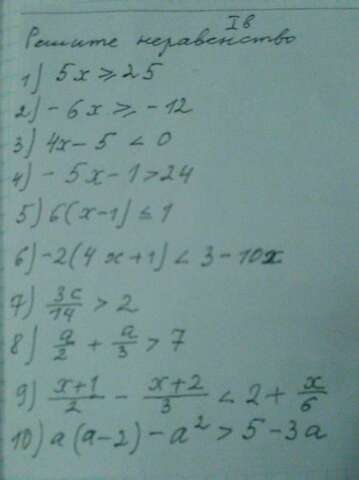 I в
Решите неравенство
1) 5x ⩾ 25
2) -6x ⩾ -12
3) 4x - 5 < 0
4) -5x - 1 > 24
5) 6(x-1) ≤ 1
6) -2(4x+1) < 3 - 10x
7) 3c/14 > 2
8) a/2 + a/3 > 7
9) x+1/2 - x+2/3 < 2 + x/6
10) a(a-2) - a² > 5 - 3a